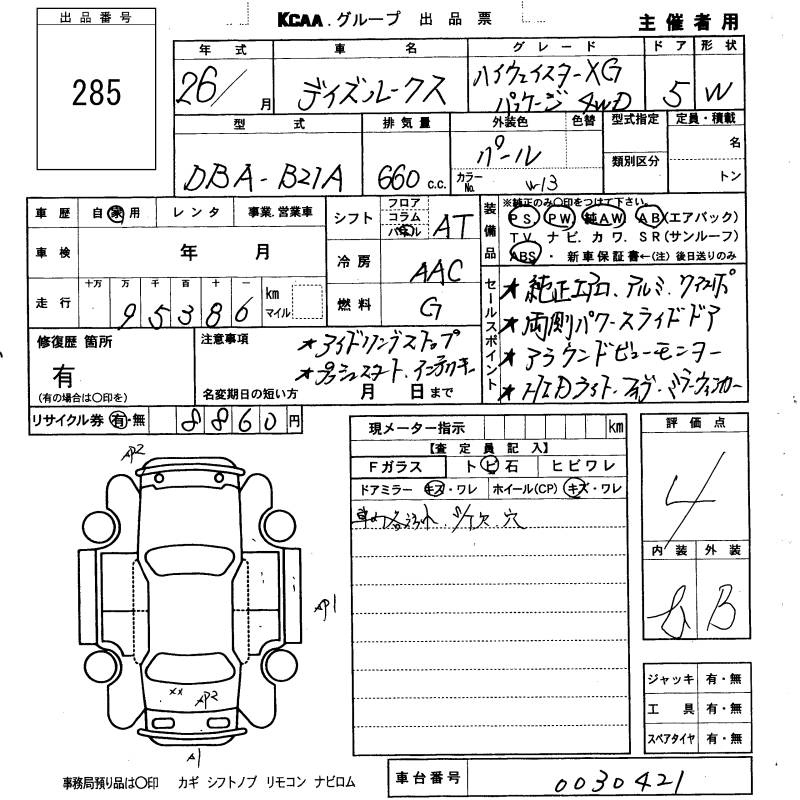 出品番号
285
KCAA.グループ 出品票 主催者用
年式 車名 グレード ドア 形状
26/ 月 デイズルークス ハイウェイスターXG パッケージ 4WD 5 W
型式 排気量 外装色 色替 型式指定 定員・積載
DBA-B21A 660 c.c. パール カラーNo. W13 類別区分 名 トン
車歴 自家用 レンタ 事業.営業車
車検 年 月
走行 十万 万 千 百 十 一 km マイル
95386
シフト フロア コラム パネル AT
冷房 AAC
燃料 G
装備品 ※純正のみ〇印をつけて下さい。
PS PW 純AW AB(エアバック)
TV ナビ.カワ.SR(サンルーフ)
ABS・ 新車保証書←(注)後日送りのみ
セールスポイント
★純正エアロ、アルミ、
★両側パワースライドドア
★アラウンドビューモニター
★HIDライト
修復歴 箇所
有
(有の場合は〇印を)
注意事項
★アイドリングストップ
★プッシュスタート
名変期日の短い方 月 日まで
リサイクル券 有・無 8860円
現メーター指示 km
【査定員記入】
Fガラス トビ石 ヒビワレ
ドアミラー キズ・ワレ ホイール(CP) キズ・ワレ
車内各汚れ
穴
評価点
4
内装 外装
B
AP2
AP1
xx AP2
A1
ジャッキ 有・無
工具 有・無
スペアタイヤ 有・無
事務局預り品は〇印 カギ シフトノブ リモコン ナビロム
車台番号 0030421